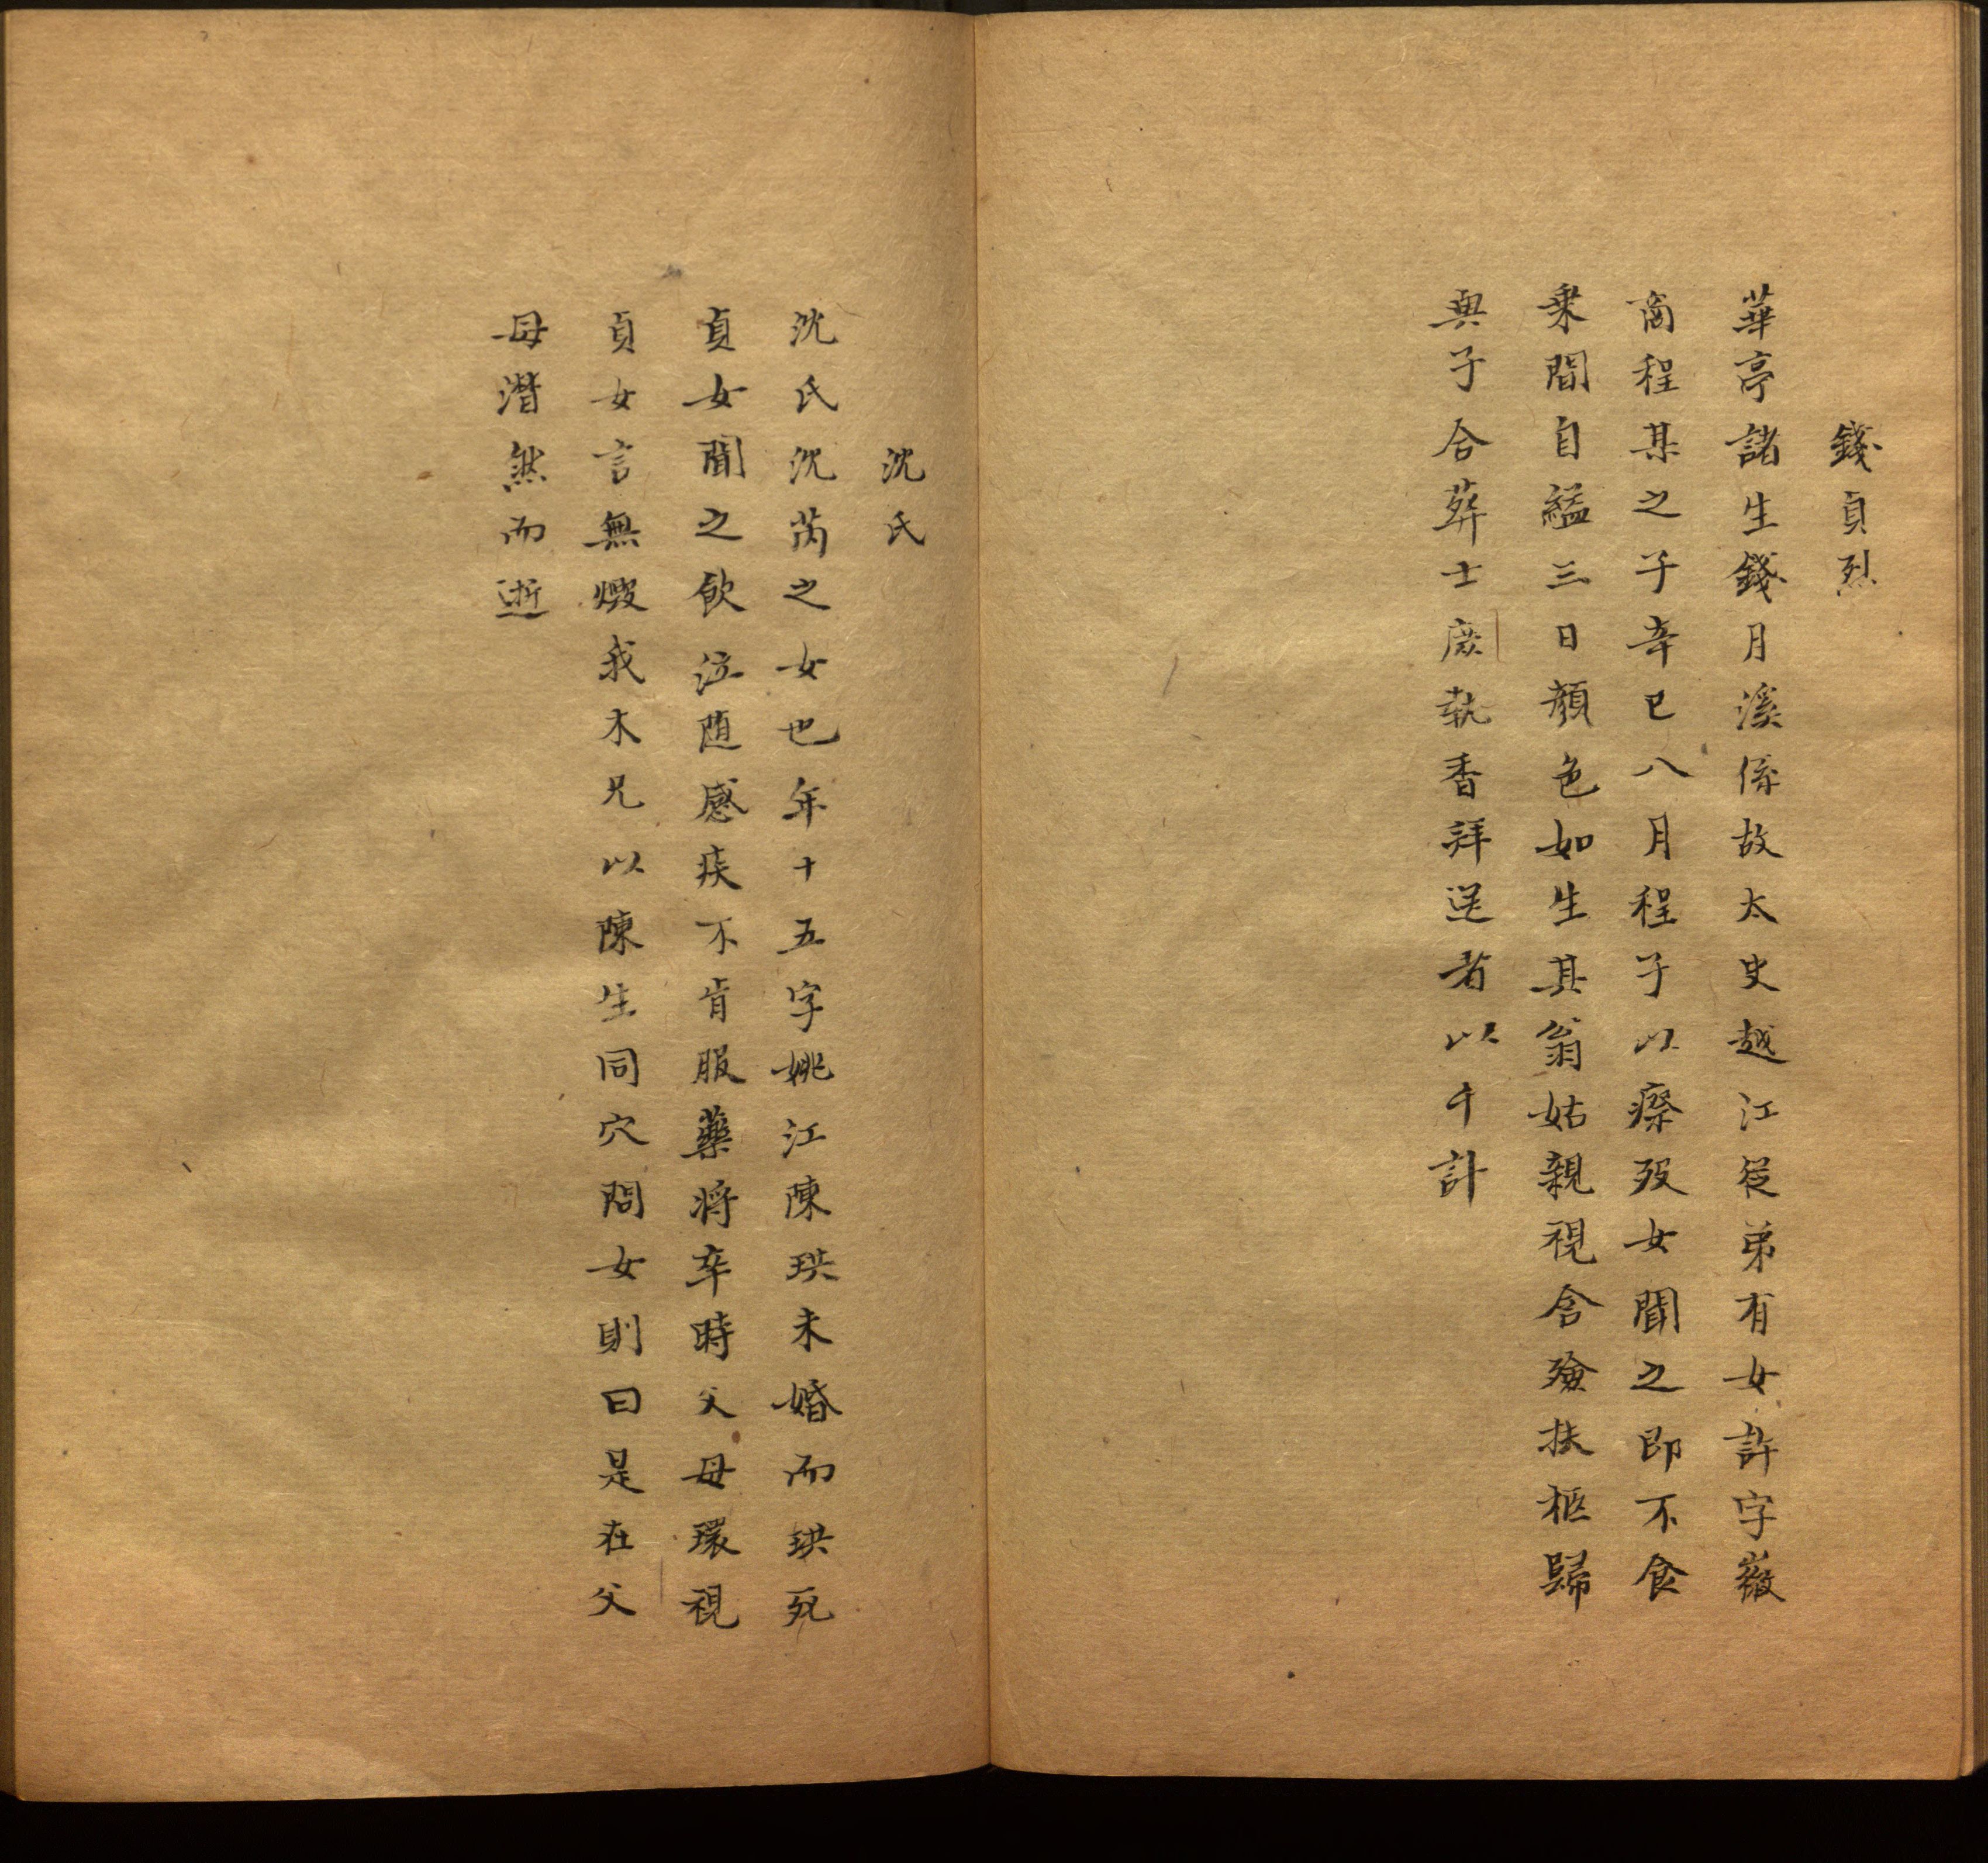 錢貞烈
華亭諸生錢月溪係故太史越江從弟有女許字徽
商程某之子辛巳八月程子以瘵歿女聞之即不食
乘間自縊三日顏色如生其翁姑親視含殮扶柩歸
與子合葬士庶執香拜送者以千計
沈氏
沈氏沈芮之女也年十五字姚江陳珙未婚而珙死
貞女聞之飲泣随感疾不肯服藥將卒時父母環視
貞女言無燬我木兄以陳生同穴問女則曰是在父
母潸然而逝